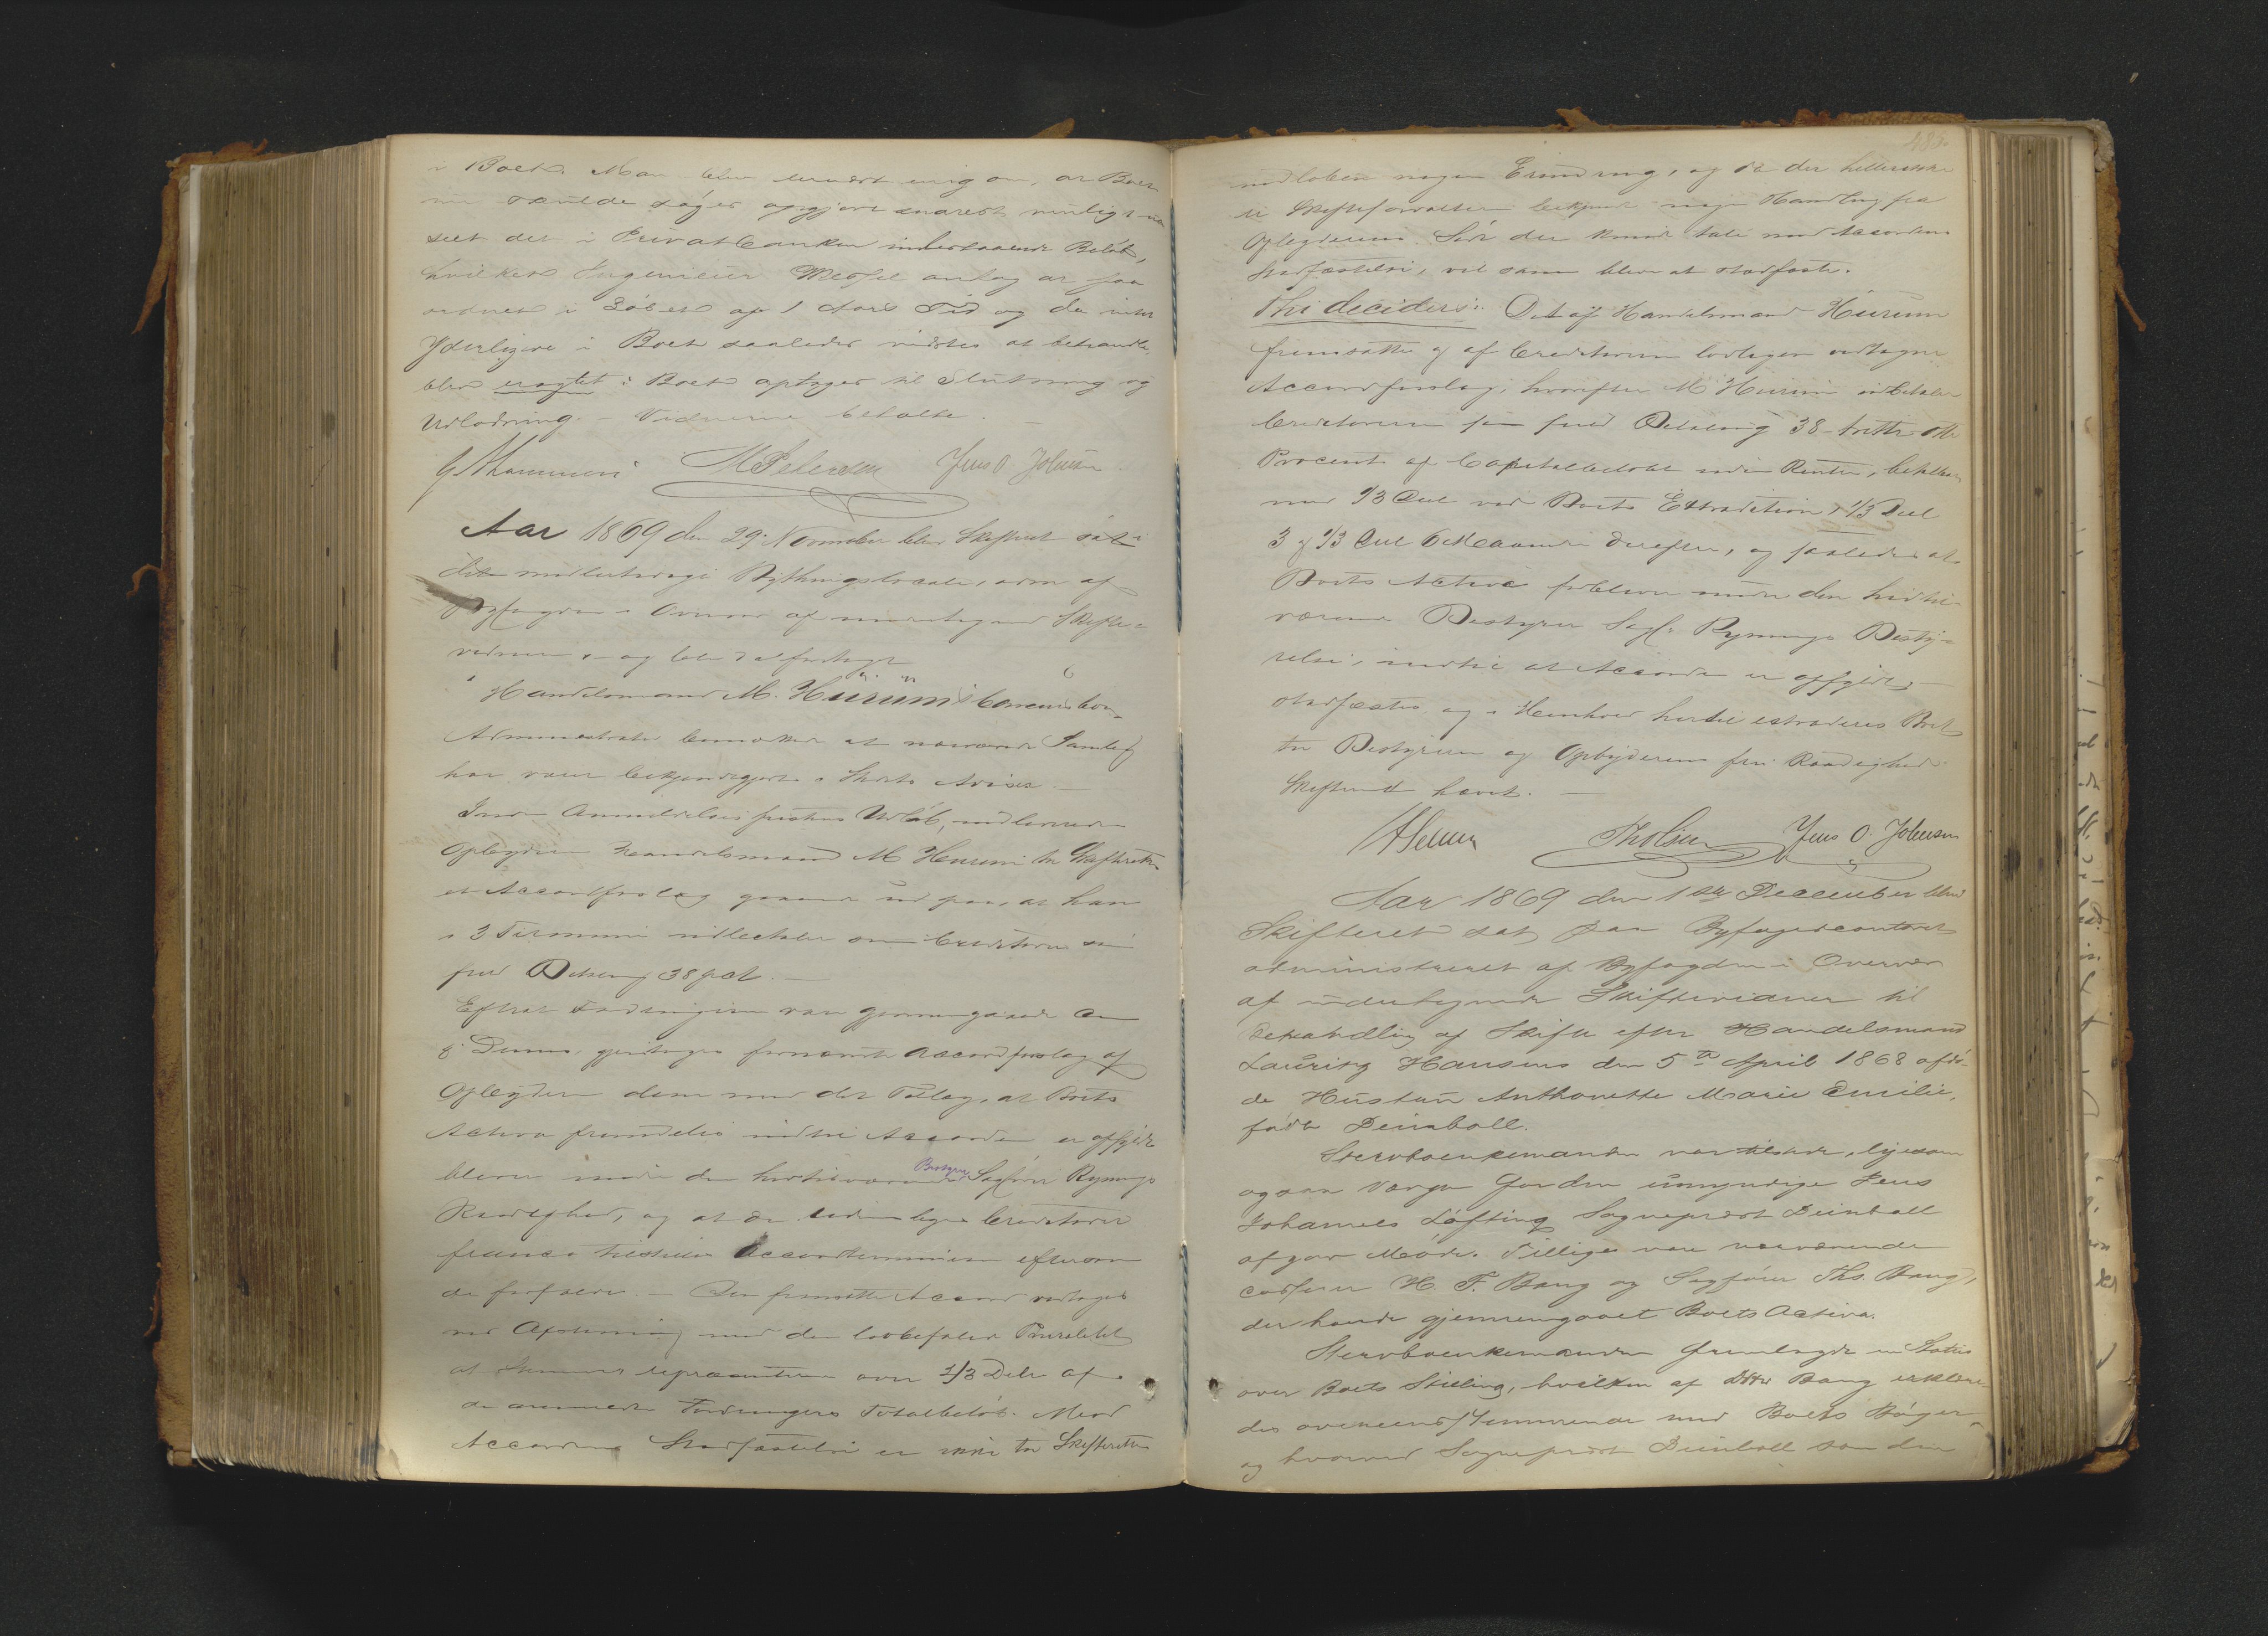 i Boet. Man blev dernæst enig om, at Boet
nu skulde søges opgjort snarest muligt
seet det i Privatbanken indestaaende Beløb,
hvilket Ingenieur Messel antog at faa
ordnet i Løbet af 1 Aars Tid og da intet
Yderligere i Boet saaledes vidstes at behandle,
blev eragtet: Boet optages til Slutning og
Udlodning. – Vidnerne betalte.
M Petersen Jens O. Johnsen
Aar 1869 den 29. November blev Skifteret sat i
det midlertidige Bythingslocale, adm af
Byfogden i Overvær af undertegnede Skifte-
vidner, og blev da foretaget
Handelsmand M. Hürüm's Concursbo.
Administrator bemærkede at nærværende Samling
har været bekjendtgjort i Stedets Aviser. –
Inden Anmeldelsesfristens Udløb, indleverede
Opbyderen Handelsmand M Hürüm til Skifteretten
et Accordforslag gaaende ud paa, at han
i 3 Terminer udbetaler sine Creditorer som
fuld Betaling 38 pCt. –
Efterat Fordringerne var gjennemgaaede
gjentoges fornævnte Accordforslag af
Opbyderen dem med det Tillæg, at Boets
Activa fremdeles indtil Accorden er opfyldt
bliver under den hidtilværende Bestyrer Sagfører Rynnings
Raadighed, og at de udenbyes Creditorer
franco tilstilles Accordterminerne eftersom
de forfalde. – Den fremsatte Accord vedtoges
ved Afstemning med den lovbefalede Pluralitet
at Stemmer repræsenterer over 2/3 Dele af
de anmeldte Fordringers Totalbeløb. Mod
Accordens Stadfæstelse er ikke for Skifteretten
485.
indløben nogen Erindring, og da der hellerikke
er Skifteforvalteren bekjendt nogen Handling fra
Opbyderens Side der kunde tale mod Accordens
Stadfæstelse, vil samme blive at stadfæste.
Thi decideres: Det af Handelsmand Hürüm
fremsatte og af Creditorerne lovligen vedtagne
Accordforslag, hvorefter M Hürüm indbetaler
Creditorerne som fuld Betaling 38 – tretti otte
Procent af Capitalbeløbet uden Renter, betalbar
med 1/3 Deel ved Boets Extradition, 1/3 Deel
3 og 1/3 Deel 6 Maaneder derefter, og saaledes at
Boets Activa forbliver under den hidtil-
værende Bestyrer Sagf. Rynnings Besty-
relse, indtil at Accorden er opfyldt, –
stadfæstes og i Henhold hertil extraderes Boet
til Bestyreren og Opbyderens frie Raadighed.
Skifteret hævet. –
Jens O. Johnsen
Aar 1869 den 1ste December blev
Skifteret sat paa Byfogedcontoret
administreret af Byfogden i Overvær
af undertegnede Skiftevidner til
Behandling af Skifte efter Handelsmand
Lauritz Hansens den 5te April 1868 afdø-
de Hustru Anthonette Marie Emilie,
født Deinboll.
Stervboenkemanden var tilstede, ligesom
ogsaa Værgen for den umyndige Jens
Johannes Løfting Sogneprest Deinboll
afgav Møde. Tillige vare nærværende
H. F. Bang og Sagfører Ths. Bang,
der havde gjennemgaaet Boets Activa.
Stervboenkemanden fremlagde en Status
over Boets Stilling, hvilken af DHrr Bang erklære-
des overeensstemmende med Boets Bøger
og hvorved Sogneprest Deinboll som den